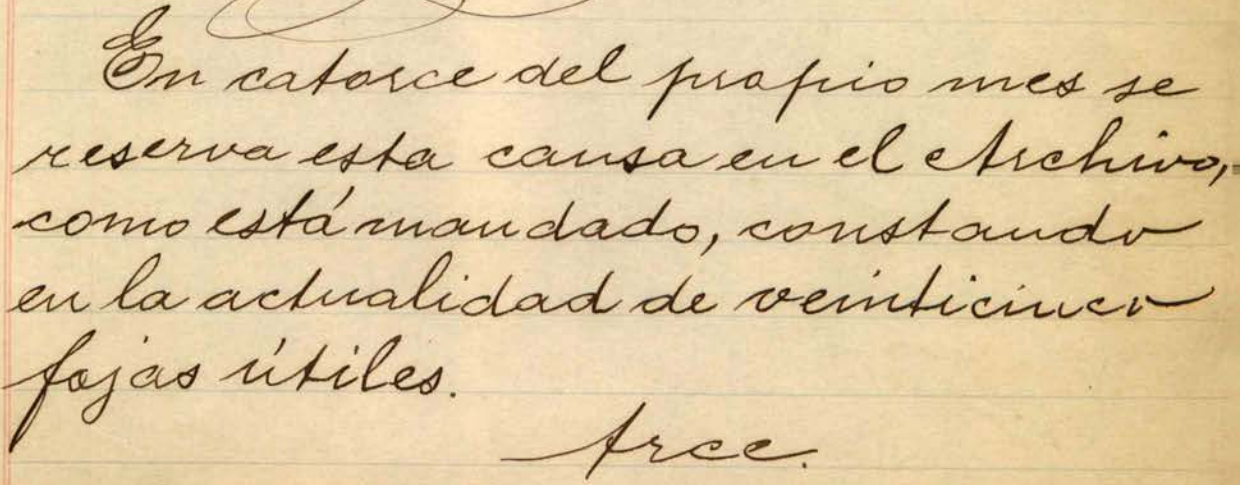 En catorce del propio mes se
reserva esta causa en el Archivo,=
como está mandado, constando
en la actualidad de veinticinco
fojas útiles.
Arce.